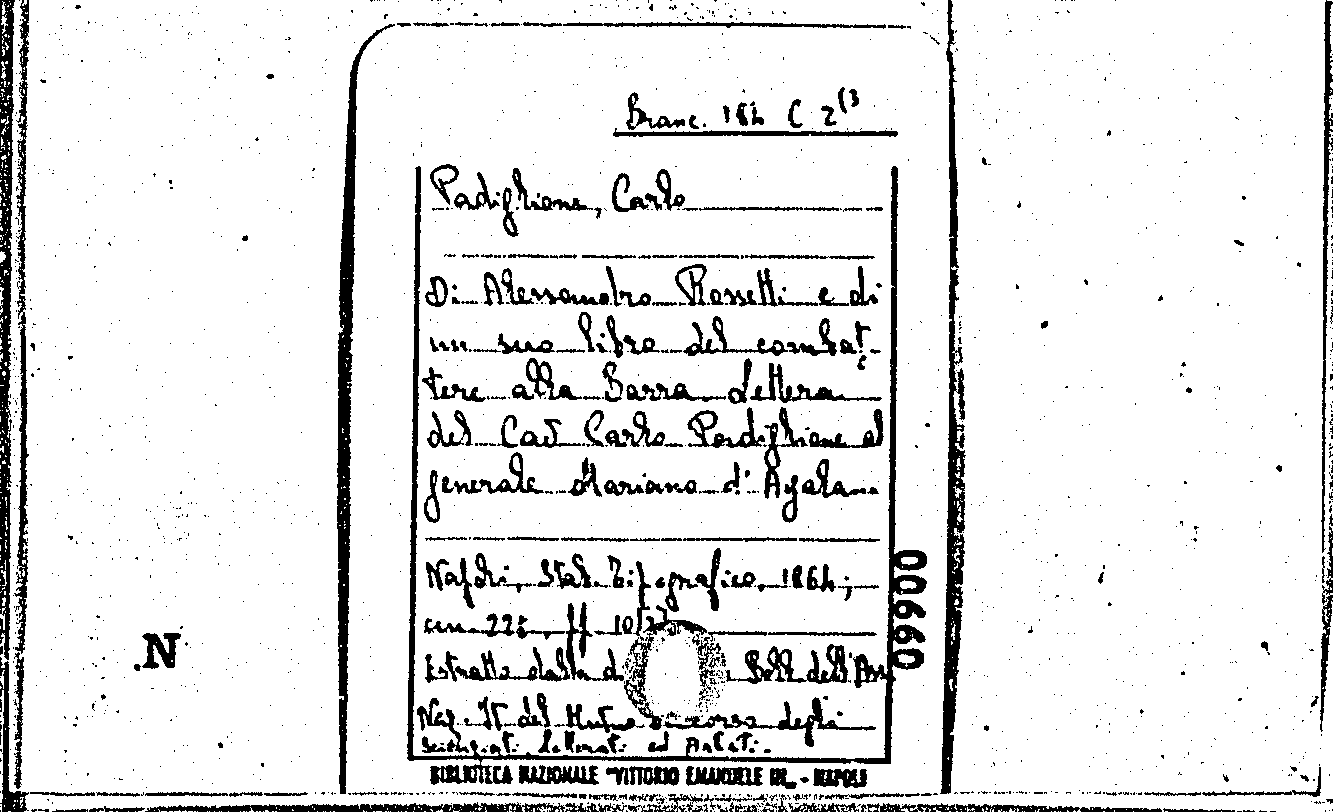 Branc. 164 C 2(3
Padiglione, Carlo
Di Alessandro Rossetti e di
un suo libro del combat-
tere alla Barra. Lettera
del Cav Carlo Padiglione al
generale Mariano d'Ayala.
Napoli, Stab. Tipografico, 1864;
cm. 22
Estratto dalla d Boll. dell'Ass
Naz. It del Mutuo degli
scienziati, letterati ed Artisti.
BIBLIOTECA NAZIONALE "VITTORIO EMANUELE III" - NAPOLI
.N